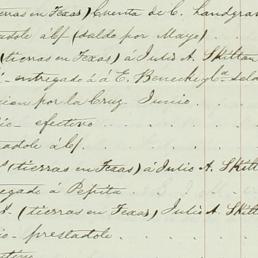 tierras en Texas) Cuenta de C. Landgra
tadole á lf (saldo por Mayo)
(tierras en Texas) á Julio A. Skilton
entregado á á E. Benecke y Ca
cion por la Cruz Junio
efectivo
tadole á lf.
(tierras en Texas) á Julio A. Skilt
egado á Pepita
A. (tierras en Texas) Julio A. Skilt
io prestadole